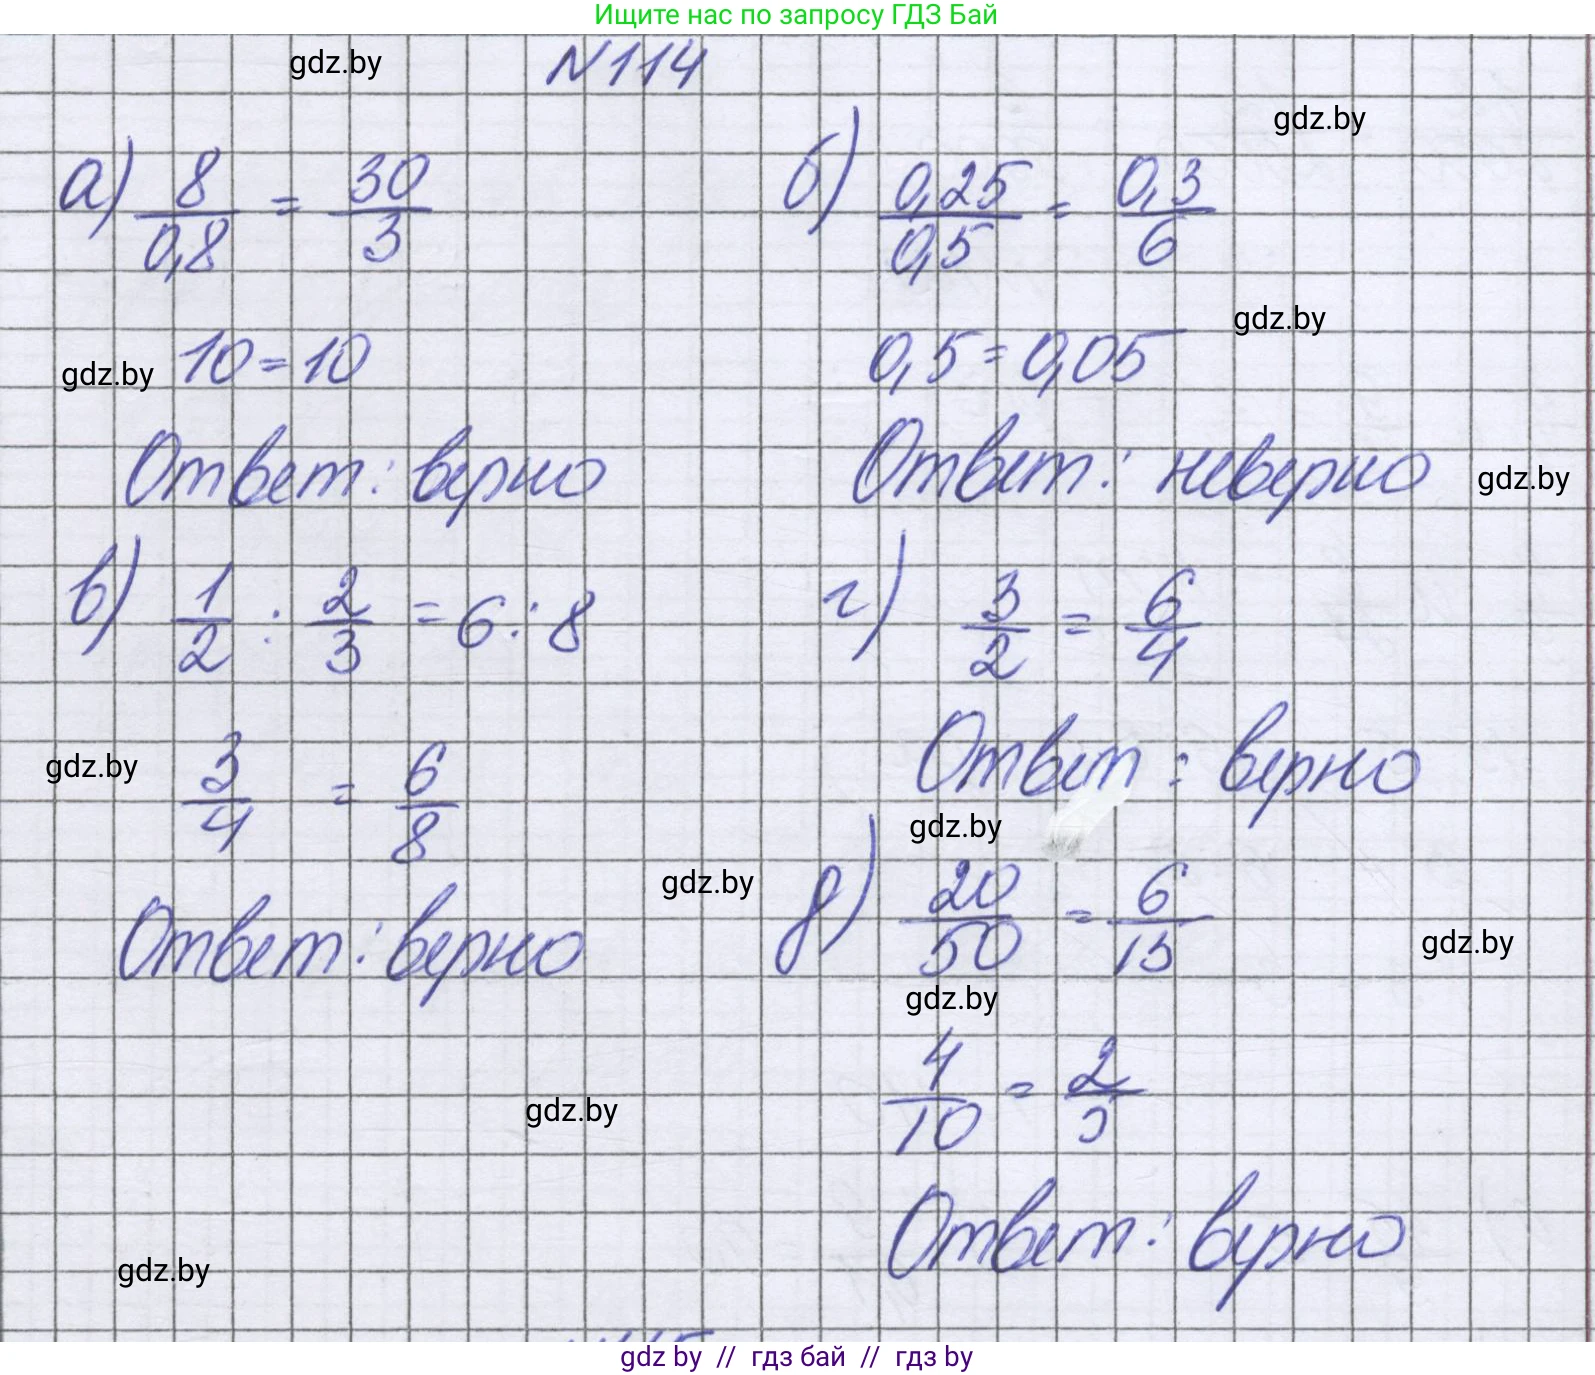 Ищите нас по запросу ГДЗ Бай
№114
gdz.by
gdz.by
а) 8/0,8 = 30/3
10 = 10
Ответ: верно
б) 0,25/0,5 = 0,3/6
gdz.by
gdz.by
0,5 = 0,05
Ответ: неверно
gdz.by
в) 1/2 : 2/3 = 6 : 8
3/4 = 6/8
gdz.by
Ответ: верно
г) 3/2 = 6/4
Ответ: верно
gdz.by
gdz.by
д) 20/50 = 6/15
gdz.by
gdz.by
4/10 = 2/5
gdz.by
Ответ: верно
gdz.by
gdz by // гдз бай // гдз by